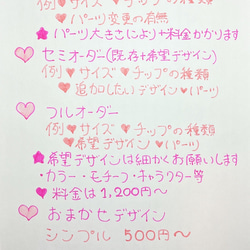 例♥サイズ♥チップの種類
♥パーツ変更の有無
★パーツ大きさにより+料金かかります
♡セミオーダー(既存+希望デザイン)
例♥サイズ♥チップの種類
♥追加したいデザイン♥パーツ
♡フルオーダー
例♥サイズ♥チップの種類
♥希望デザイン♥パーツ
★希望デザインは細かくお願いします
・カラー・モチーフ・キャラクター等
♥料金は1,200円〜
♡おまかせデザイン
シンプル 500円〜